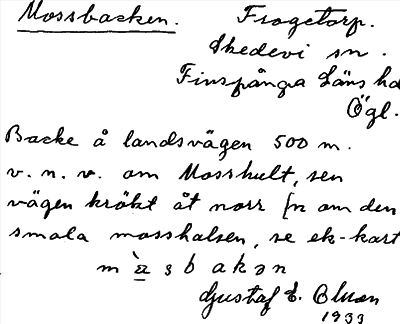 Mossbacken. Frogetorp.
Skedevi sn.
Finspånga Läns hd
Ögl.
Backe å landsvägen 500 m.
v. n. v. om Mosshult, sen
vägen krökt åt norr [n om den
smala mosshalsen, se ek-kart
m ä s b a k ə n
Gustaf E. Olsson
1933